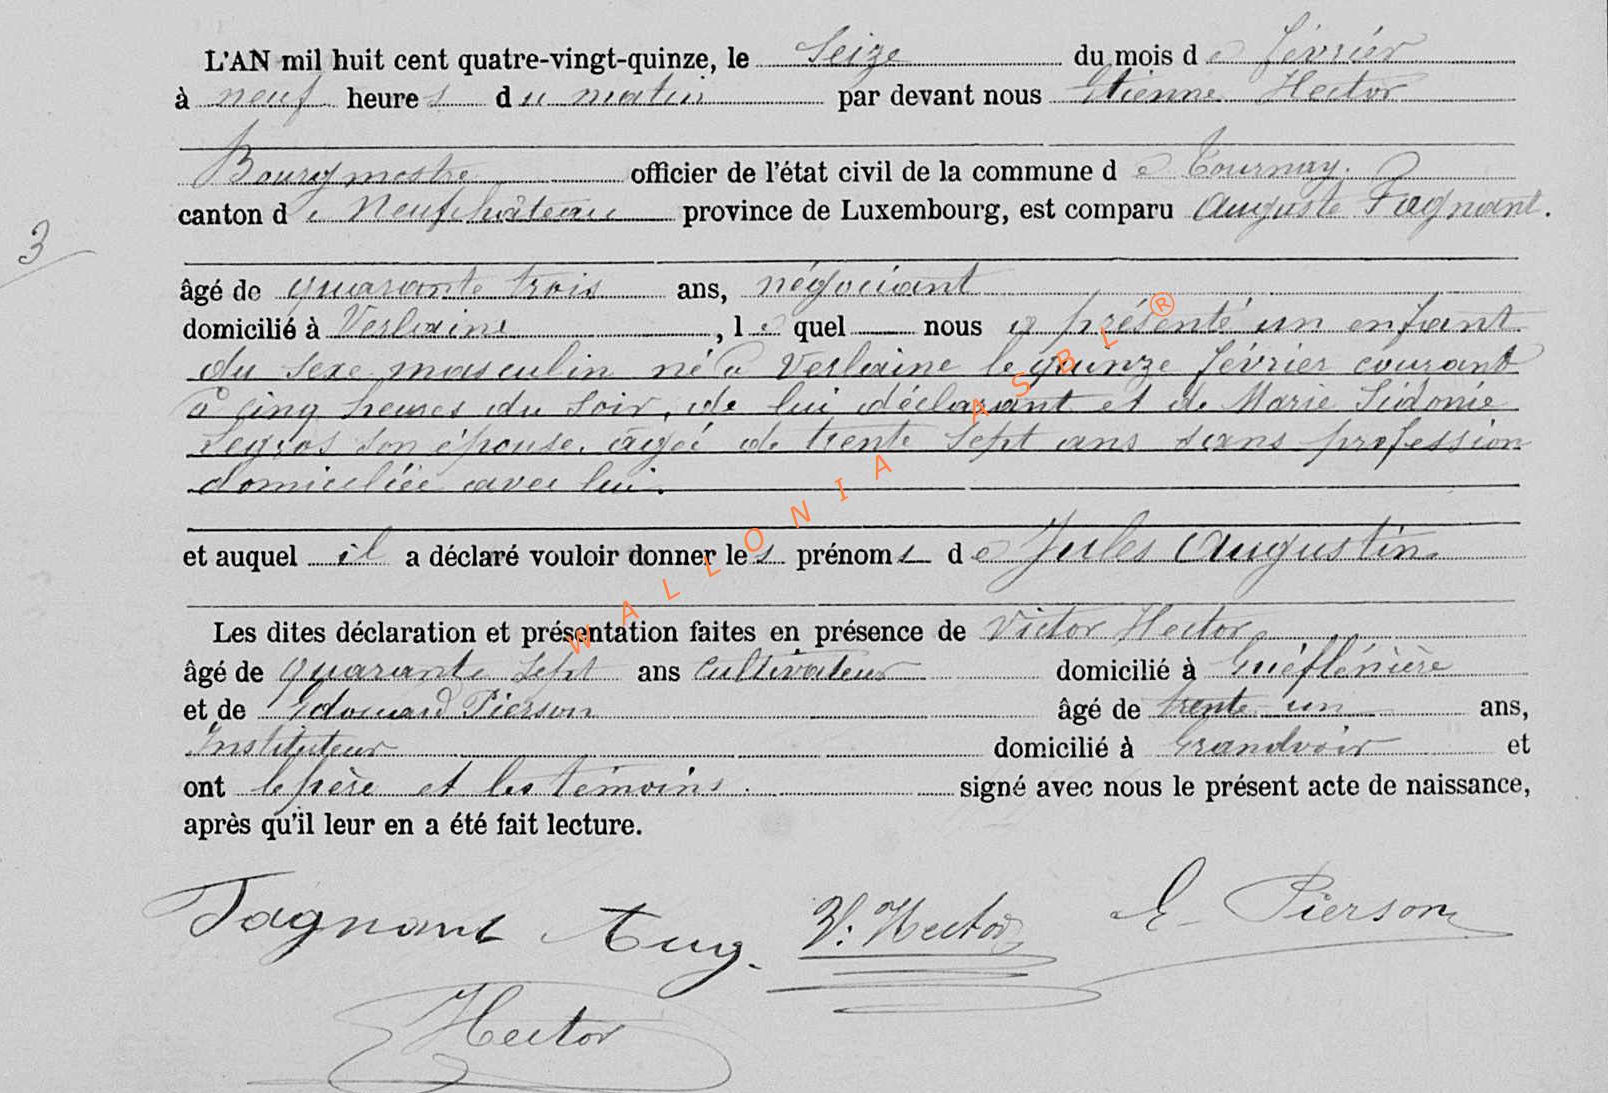 L'AN mil huit cent quatre-vingt-quinze, le Seize du mois de février
à neuf heures du matin par devant nous Etienne Hector
Bourgmestre officier de l'état civil de la commune de Tournay.
canton de Neufchâteau province de Luxembourg, est comparu Auguste Fagnant.
3
âgé de quarante trois ans, négociant
domicilié à Verlaine, lequel nous a présenté un enfant
du sexe masculin né à Verlaine le quinze février courant
à cinq heures du soir, de lui déclarant et de Marie Sidonie
Legros son épouse, âgée de trente sept ans sans profession
domiciliée avec lui.
et auquel il a déclaré vouloir donner les prénoms de Jules Augustin
Les dites déclaration et présentation faites en présence de Victor Hector
âgé de quarante sept ans cultivateur domicilié à
et de Edouard Pierson âgé de trente un ans,
Instituteur domicilié à Grandvoir et
ont le père et les témoins. signé avec nous le présent acte de naissance,
après qu'il leur en a été fait lecture.
Fagnant Aug. V. Hector E. Pierson
Hector
WALLONIA ASBL ®